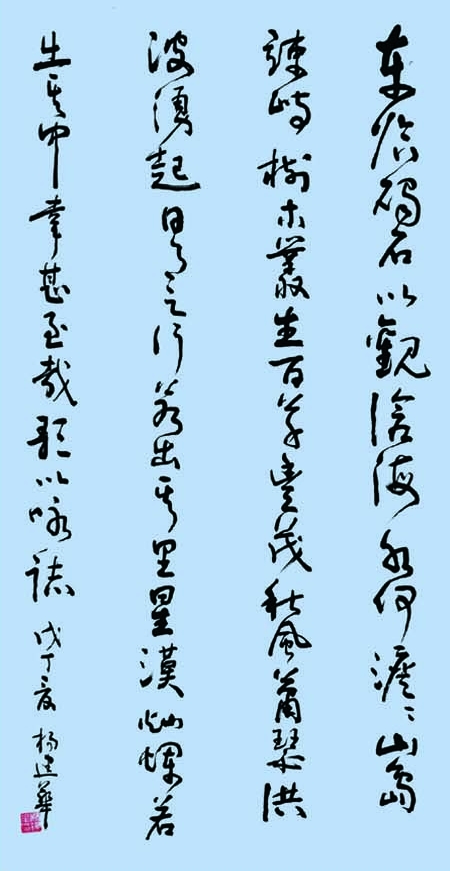 東临碣石以觀滄海水何澹〻山島
竦峙樹木叢生百草豐茂秋風蕭瑟洪
波湧起日月之行若出其里星漢灿爛若
生其中幸甚至哉歌以咏誌 戊丁夏 楊建華